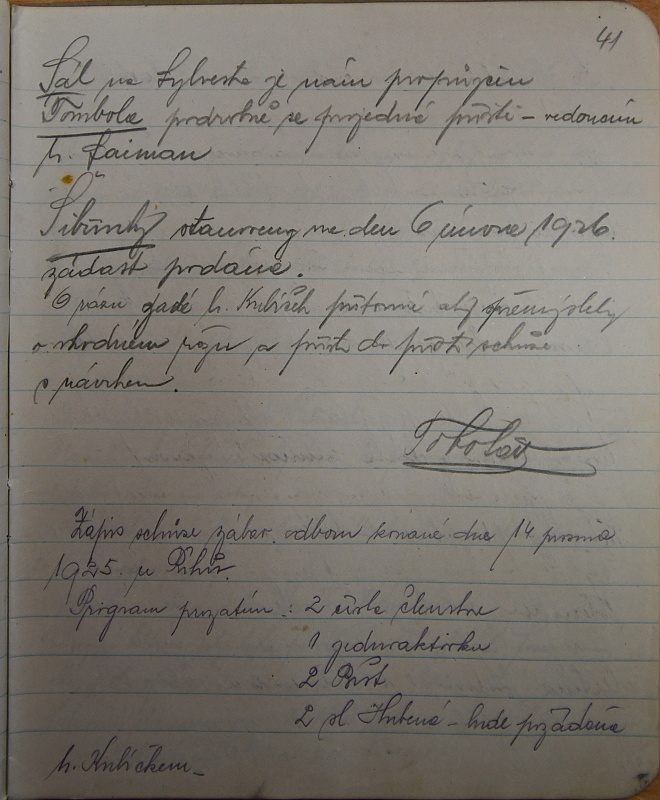 41
Sál na Sylvestra je nám propůjčen
Tombola podrobně se projedná příště – vedoucím
p. Faiman
Šibřinky stanoveny na den 6 února 1926.
žádost podána.
O rázu žádá p. Kubíček přítomné aby přemýšleli
o vhodném rázu a přišli do příští schůze
s návrhem.
Zápis schůze zábav. odboru konané dne 14. prosince
1925. u
Program prozatím : 2 čísla Členstva
1 jednoaktovka
2
2 sl. Hubená – bude požádána
p. Kubíčkem –